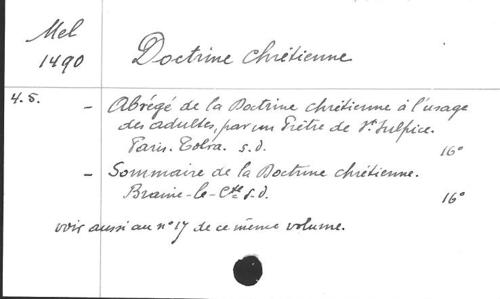 Mel
1490
Doctrine chrétienne
4.5. - Abrégé de la Doctrine chrétienne à l'usage
des adultes, par un Prêtre de St Sulpice.
Paris. Tolra. s.d. 16°
- Sommaire de la Doctrine chrétienne.
Braine-le-Cte s.d. 16°
voir aussi au n° 17 de ce même volume.